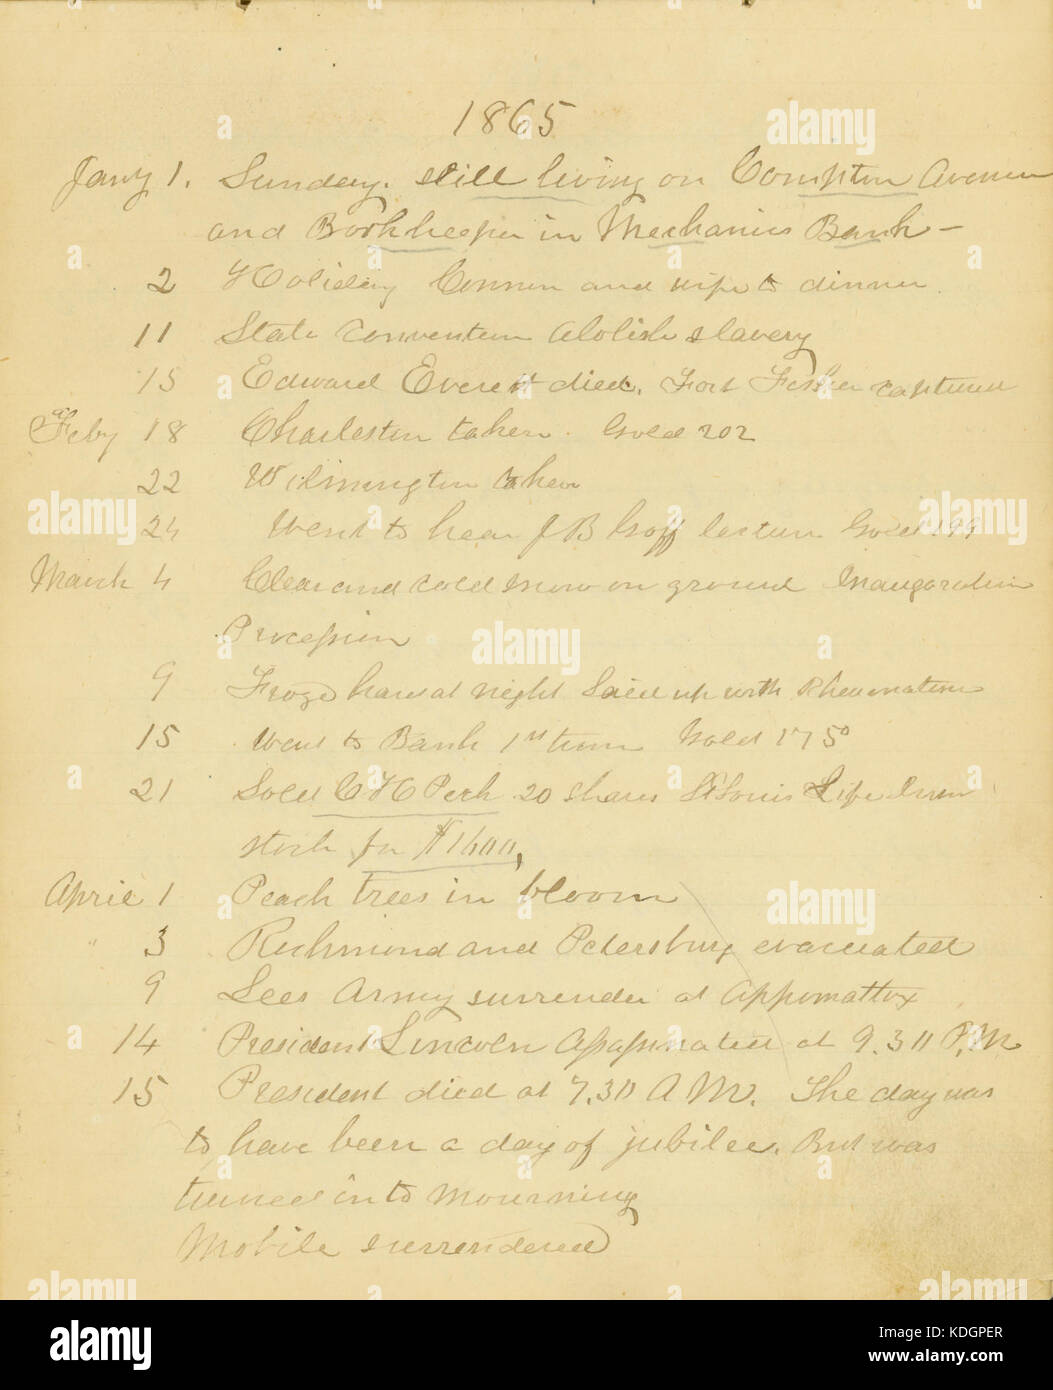 1865
Jany 1. Sunday. still living on Compton Avenue
and Bookkeeper in Mechanics Bank –
2 Holiday Connon and wife to dinner.
11 State Convention Abolish slavery
15 Edward Everett died. Fort Fisher captured
Feby 18 Charleston taken. Gold 202
22 Wilmington taken
24 Went to hear J B Goff lecture Gold 199
March 4 Clear and cold snow on ground Inauguration
Procession
9 Froze hard at night Laid up with Rheumatism
15 Went to Bank 1st time Gold 175
21 Sold C H Peck 20 shares St Louis Life Insur
stock for $1600,
April 1 Peach trees in bloom
" 3 Richmond and Petersburg evacuated
9 Lees Army surrender at Appomattox
14 President Lincoln Assassinated at 9.30 P.M
15 President died at 7.30 A M. The day was
to have been a day of jubilee. But was
turned into mourning
Mobile surrendered
alamy
a
KDGPER
www.alamy.com